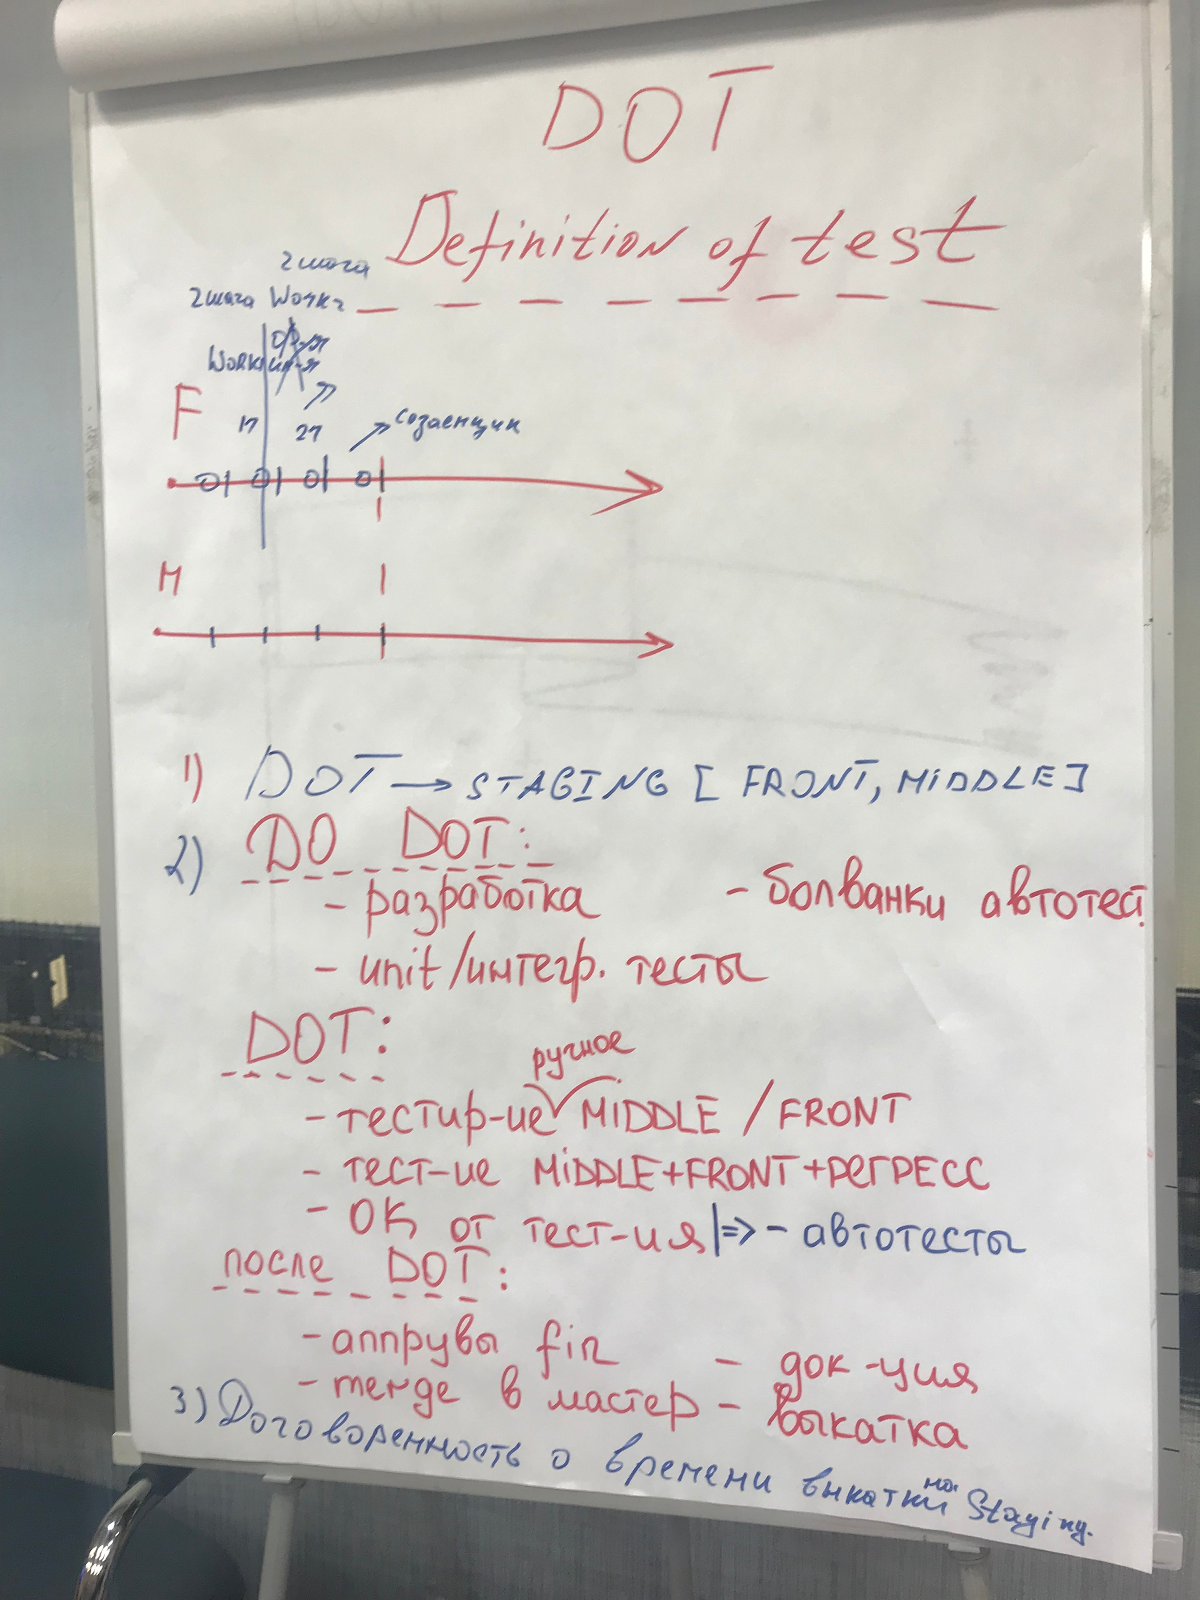 DOT
Definition of test
2 шага
2 шага Work2
Work
F
1п
2п
M
1) DOT → STAGING [ FRONT, MiDDLE ]
2) DO DOT:
- разработка - болванки автотест
- unit/интегр. тесты
DOT:
ручное
- тестир-ие MiDDLE / FRONT
- тест-ие MiDDLE+FRONT+РЕГРЕСС
- ОК от тест-ия |=> - автотесты
после DOT:
- аппрувы fin - док-ция
- merge в мастер - выкатка
3) Договоренность о времени выкатки на Staging.